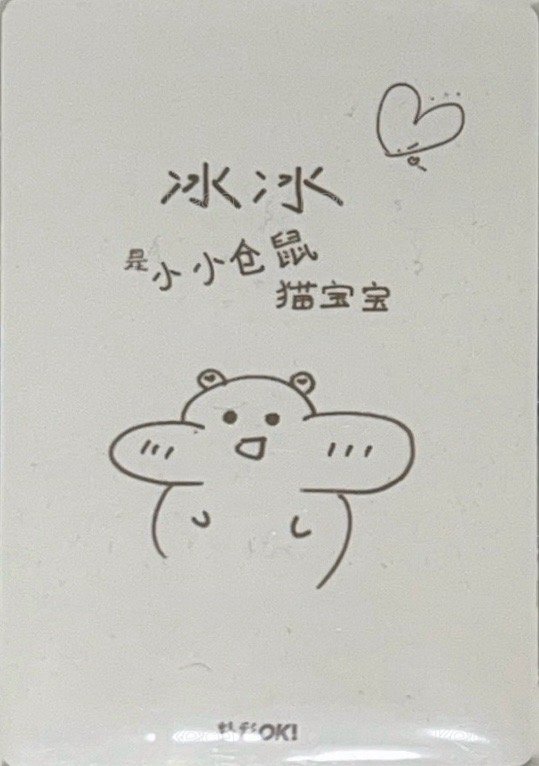 冰冰
是小小仓鼠
猫宝宝
OK!